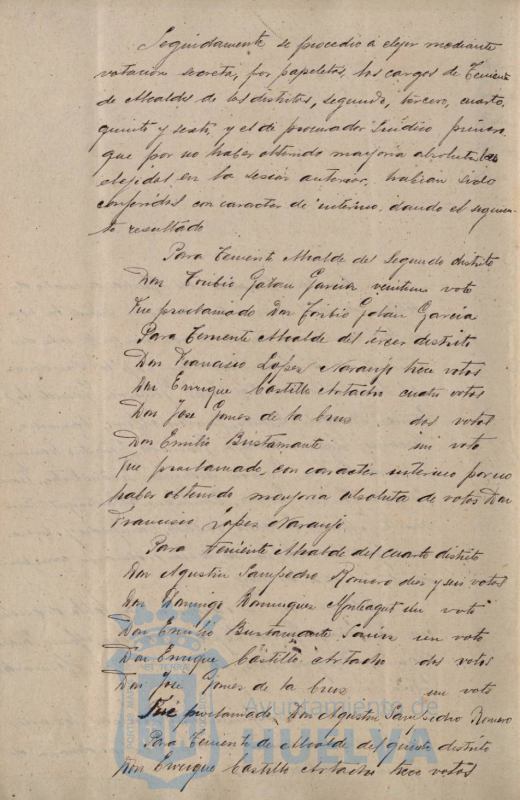 Seguidamente se procedió á elejir mediante
votación secreta, por papeletas, los cargos de Teniente
de Alcaldes de los distritos, segundo, tercero, cuarto,
quinto y sexto, y el de procurador Sindico primero
que por no haber obtenido mayoria absoluta los
elejidos en la sesión anterior, habian sido
conferidos con caracter de interino, dando el siguien-
te resultado
Para Teniente Alcalde del Segundo distrito
Don Toribio Galan Garcia veintiun voto
Fue proclamado Don Toribio Galán Garcia
Para Teniente Alcalde del tercer distrito
Don Francisco Lopez Naranjo trece votos
Don Enrique Castillo Artacho cuatro votos
Don José Gomes de la Cruz dos votos
Don Emilio Bustamante un voto
Fue proclamado, con caracter interino por no
haber obtenido mayoria absoluta de votos Don
Francisco Lopez Naranjo
Para teniente Alcalde del cuarto distrito
Don Agustin Sampedro Romero diez y seis votos
Don Domingo Dominguez Monteagut un voto
Don Emilio Bustamante un voto
Don Enrique Castillo Artacho dos votos
Don José Gomes de la Cruz un voto
Fué proclamado, Don Agustin Sampedro Romero
Para Teniente de Alcalde del quinto distrito
Don Enrique Castillo Artacho trece votos
Ayuntamiento de
HUELVA